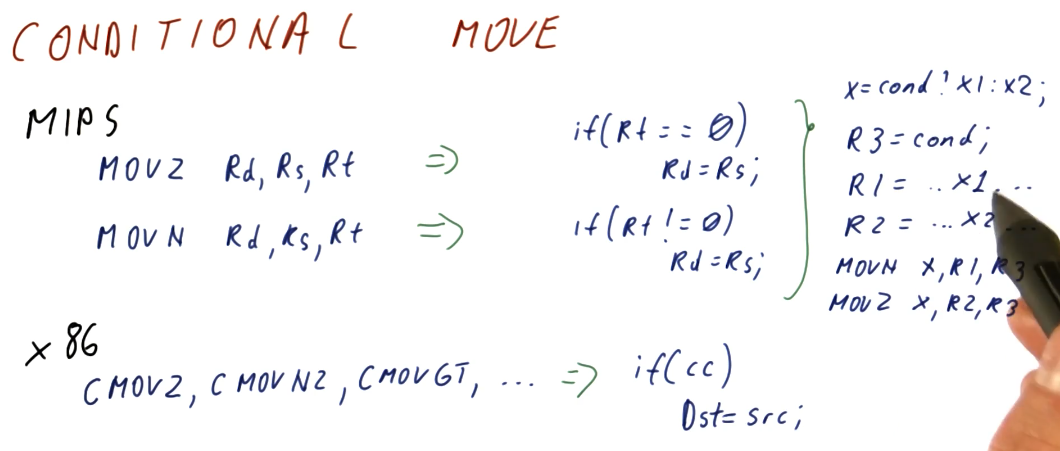 CONDITIONAL MOVE
MIPS
MOVZ Rd, Rs, Rt => if(Rt == 0)
Rd = Rs;
MOVN Rd, Rs, Rt => if(Rt != 0)
Rd = Rs;
x = cond ? x1 : x2;
R3 = cond;
R1 = .. x1 ...
R2 = ... x2 ...
MOVN X, R1, R3
MOVZ X, R2, R3
x86
CMOVZ, CMOVNZ, CMOVGT, ... => if(cc)
Dst = src;